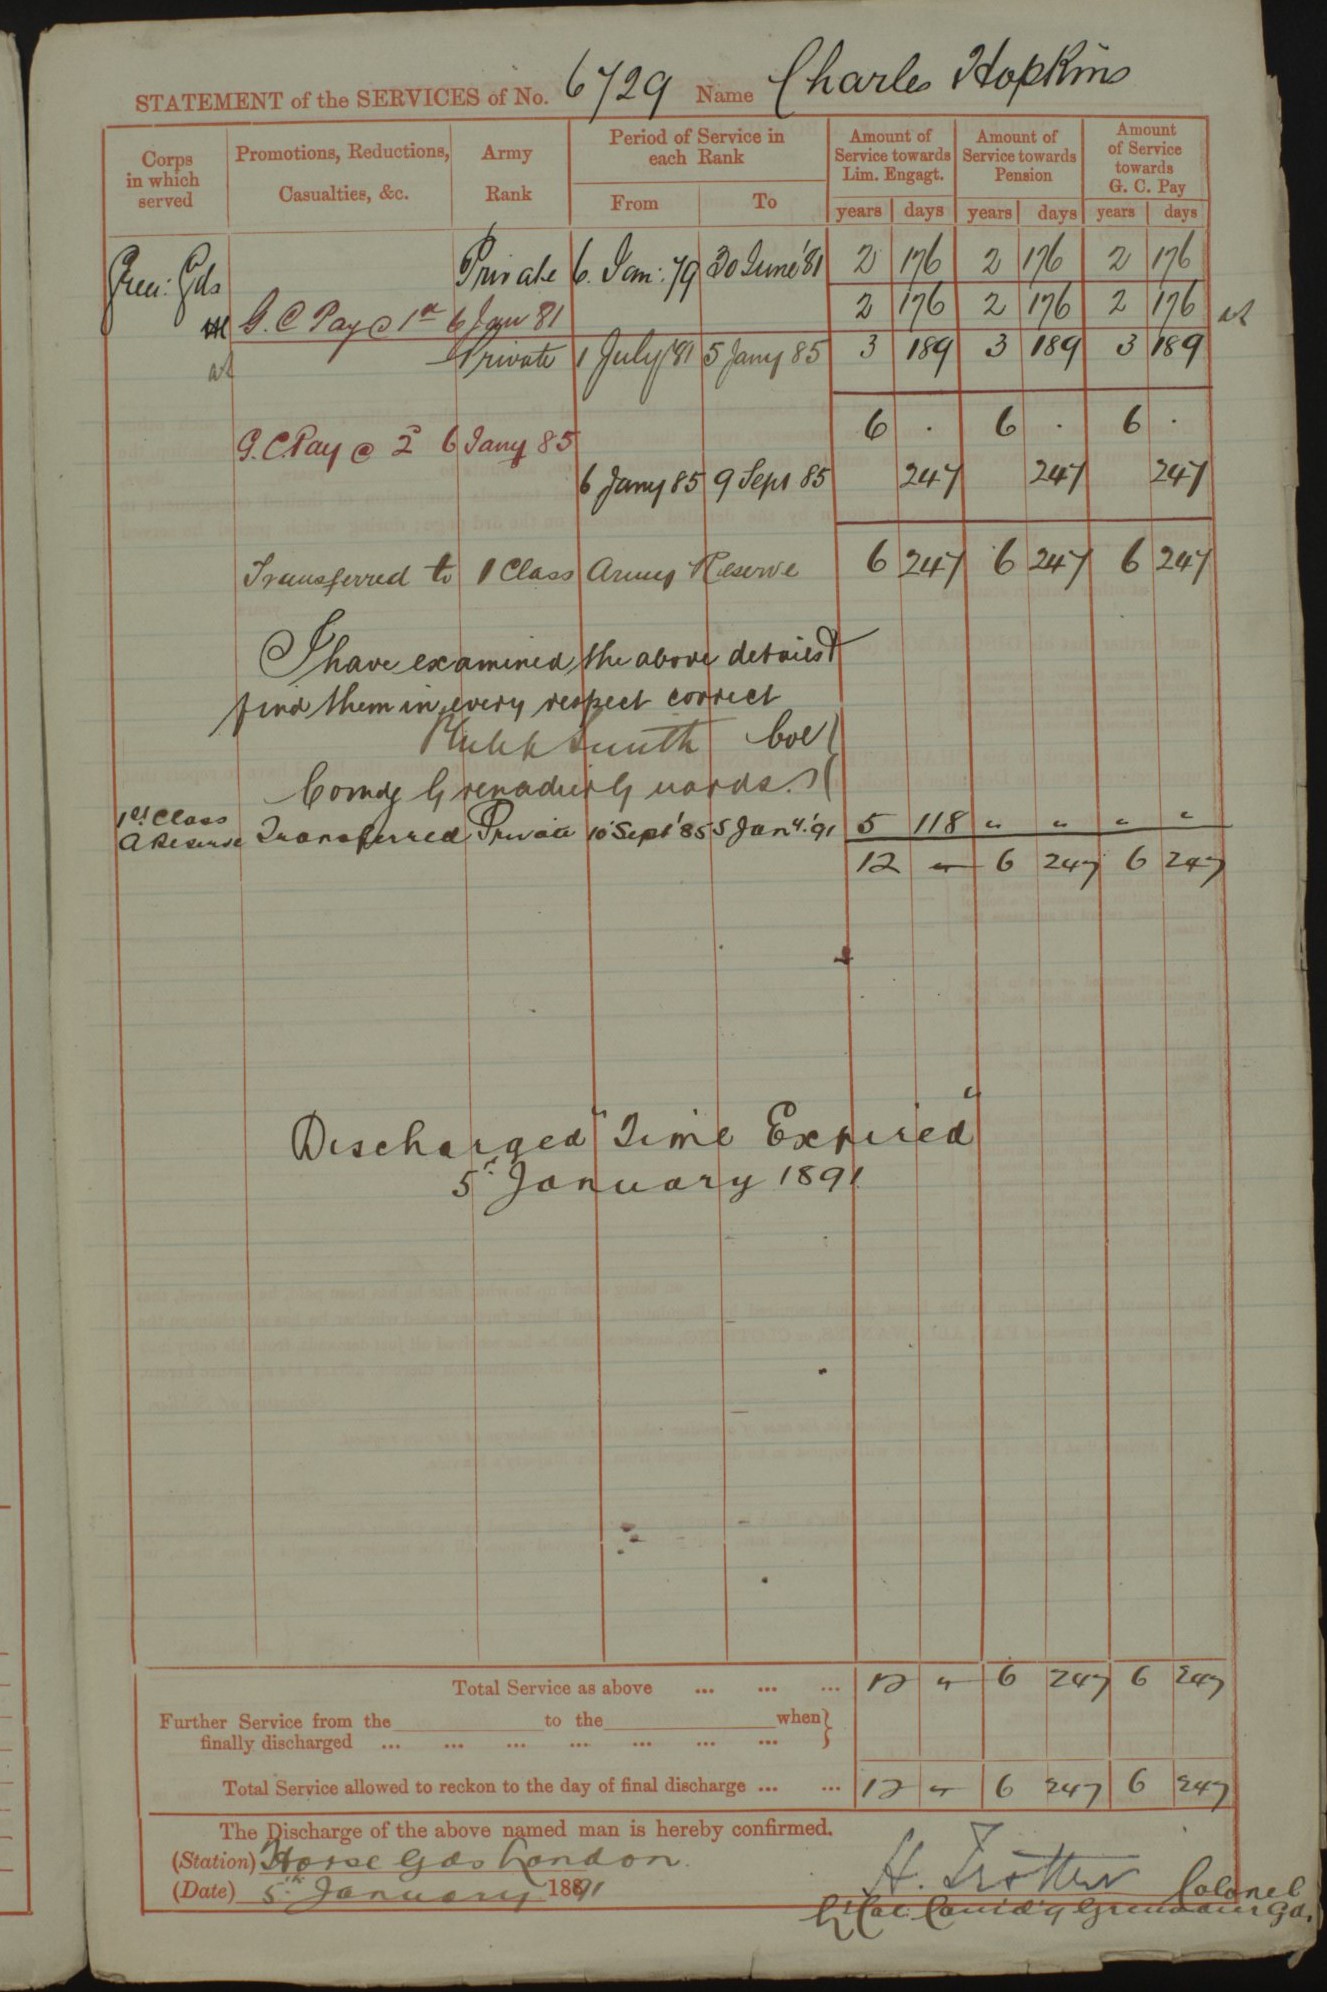 STATEMENT of the SERVICES of No. 6729 Name Charles Hopkins
Corps in which served
Promotions, Reductions, Casualties, &c.
Army Rank
Period of Service in each Rank
From To
Amount of Service towards Lim. Engagt.
Amount of Service towards Pension
Amount of Service towards G. C. Pay
years days years days years days
Gren: Gds Private 6. Jan: 79 30 June '81 2 176 2 176 2 176
G. C Pay @ 1d 6 Jany 81 2 176 2 176 2 176
Private 1 July '81 5 Jany 85 3 189 3 189 3 189
6 . 6 . 6 .
G. C. Pay @ 2d 6 Jany 85
6 Jany 85 9 Sept 85 247 247 247
Transferred to 1 Class Army Reserve 6 247 6 247 6 247
I have examined the above details &
find them in every respect correct
Smith Col
Comdg Grenadier Guards.
1st Class
A Reserve Transferred Private 10 Sept '85 5 Jany. '91 5 118 " " " "
12 " 6 247 6 247
Discharged "Time Expired"
5th January 1891
Total Service as above ... ... ... 12 " 6 247 6 247
Further Service from the to the when
finally discharged ... ... ... ... ... ... ...
Total Service allowed to reckon to the day of final discharge ... ... 12 " 6 247 6 247
The Discharge of the above named man is hereby confirmed.
(Station) Horse Gds London.
(Date) 5th January 1891
H. Trotter Colonel
Lt Col. Comd'g Grenadier Gds.